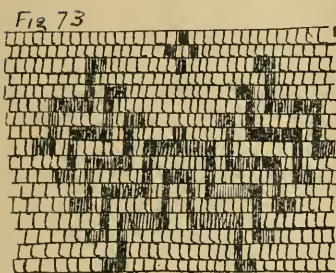 Fig 73